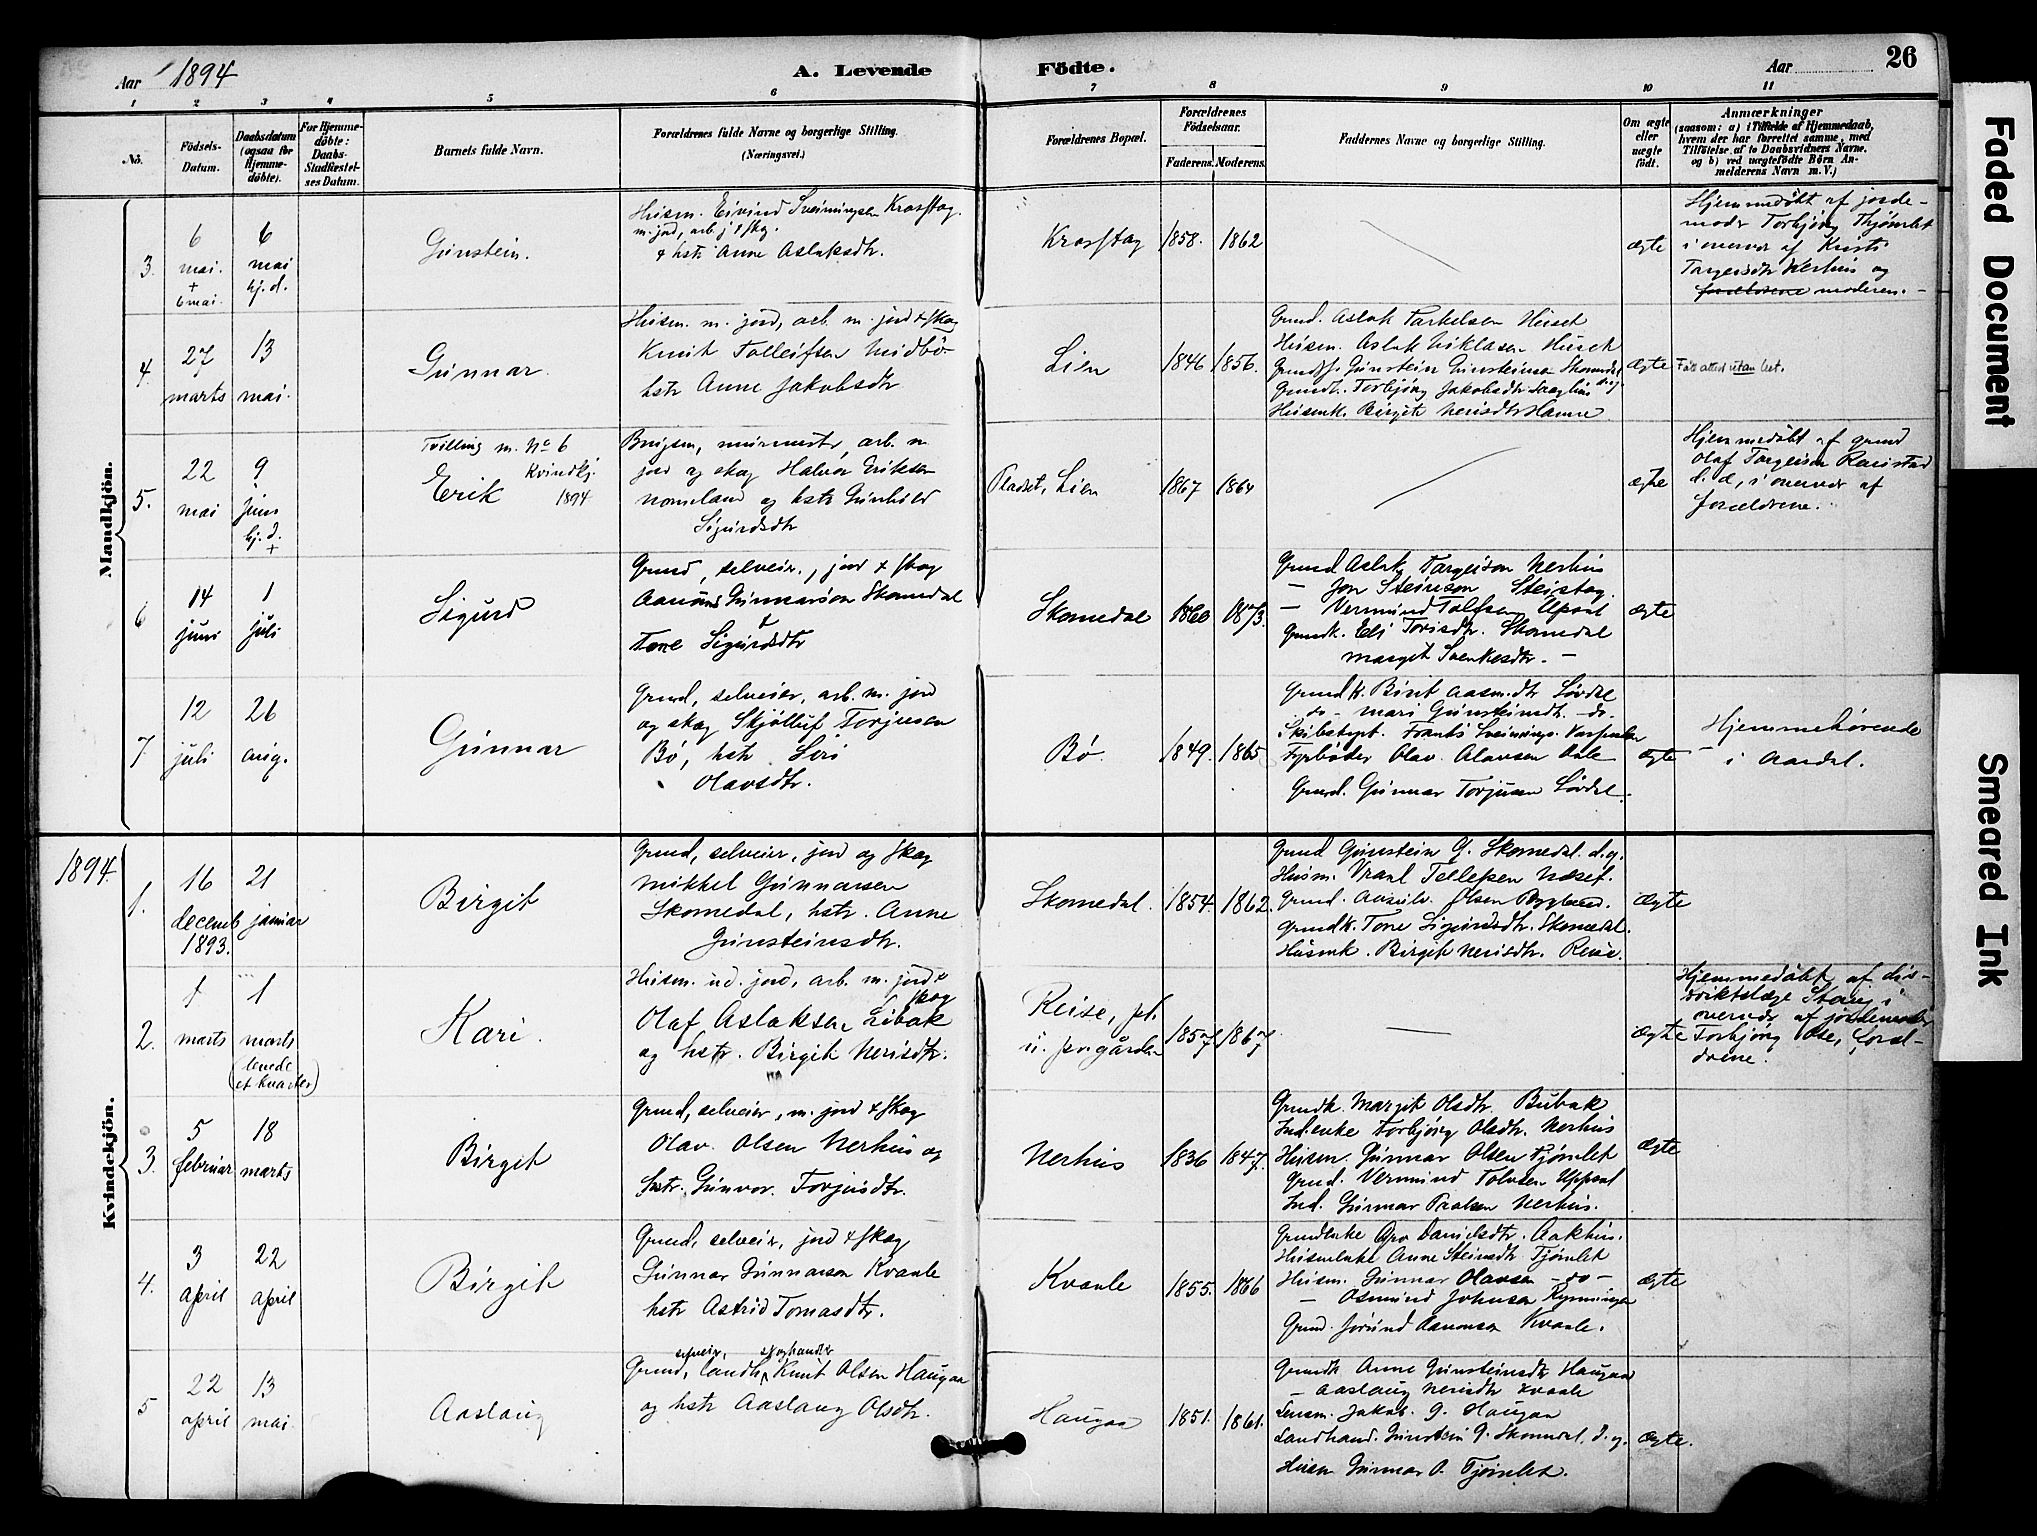 26
Aar 1894
A. Levende Födte.
Aar
1 2 3 4 5 6 7 8 9 10 11
No.
Födsels-
Datum.
Daabsdatum
(ogsaa for
Hjemme-
döbte).
For Hjemme-
döbte:
Daabs-
Stadfæstel-
ses Datum.
Barnets fulde Navn.
Forældrenes fulde Navne og borgerlige Stilling.
(Næringsvei.)
Forældrenes Bopæl.
Forældrenes
Födselsaar.
Faderens. Moderens.
Faddernes Navne og borgerlige Stilling.
Om ægte
eller
uægte
födt.
Anmærkninger
(saasom: a) i Tilfælde af Hjemmedaab,
hvem der har forrettet samme, med
Tilföielse af to Daabsvidners Navne,
og b) ved uægtefödte Börn An-
melderens Navn m. V.)
Mandkjön.
3.
6
mai.
+
6 mai.
6
mai
hj. d.
Gunstein.
Husm. Eivind Sveinungsen Krosstag.
m. jord, arb. j & skog.
& hstr Anne Aslaksdtr.
Krosstag
1858. 1862
ægte
Hjemmedöbt af jorde-
moder Torbjörg Thjömlet
i overvær af
Targeisdtr Nerhus og
forældrene moderen. -
4.
27
marts
13
mai.
Gunnar.
Husm. m. jord, arb. m. jord & skog
Knut Tolleifsen Midbö
hstr Anne Jakobsdtr
Lien
1846 1856.
Grund. Aslak Tarkelsen Huset
Husm. Aslak Niklasen Huset
Gunstein Gunsteinsen Skomedal
Torbjörg Jakobsdtr
Husmk. Birgit Nerisdtr Hamre
ægte
utan
5.
22
mai
9
juni
hj. d.
+
Tvilling m. No 6
Kvindkj.
Erik 1894
arb. m
jord og skog Halvor Eriksen
Nomeland og hstr Gunhild
Sigurdsdtr
Pladset, Lien
1867 1864
ægte
Hjemmedöbt af grund
Olaf Targeisen Raustad
d. d, i overvær af
forældrene.
6
14
juni
1
juli
Sigurd
Grund, selveier., jord & skog
Aanund Gunnarson Skomedal
&
Tone Sigurdsdtr
Skomedal
1860 1873.
Grund Aslak Targeison Nerhus
- Jon Steinson
- Vermund Tolfsen Upsal
Grundk. Eli Torisdtr. Skomedal
Margit Svenkesdtr. -
ægte
7
12
juli
26
aug.
Gunnar
Grund, selveier, arb. m. jord
og skog Skjöllulf Torjusen
Bö, hstr Siri
Olavsdtr.
Bö.
1849. 1865
Grundk. Aasm.dtr Lövdal
-do- Mari Gunsteinsdtr. -do-
Frants Sveinungs.
Fyrböder Olav Olavsen Dale
Grund. Gunnar Torjusen Lövdal.
ægte
Hjemmehörende
i Aardal.
1894.
Kvindekjön.
1.
16
decemb
1893.
21
januar
Birgit
Grund, selveier, jord og skog
Mikkel Gunnarsen
Skomedal, hstr. Anne
Gunsteinsdtr.
Skomedal.
1854. 1862.
Grund Gunstein G. Skomedal. d. y.
Husm. Vraal Tellefsen
Grund. Olsen
Grundk. Tone Sigurdsdtr. Skomedal.
Husmk. Birgit Nerisdtr. Reise.
ægte
2.
1
marts
1
marts
(levede
et kvarter)
Kari.
Husm. ud. jord, arb. m. jord &
skog
Olaf Aslaksen Libak
og hstr. Birgit Nerisdtr.
Reise, pl.
u. pr.gården
1857 1867
ægte
Hjemmedöbt af dis-
triktslæge Stang i
overvær af jordemoder
Torbjörg Ose, foræl-
drene.
3.
5
februar
18
marts
Birgit
Grund, selveier, m. jord & skog
Olav Olsen Nerhus og
hstr. Gunvor Torjusdtr.
Nerhus
1836 1847.
Grundk. Margit Olsdtr. Bubak
Ind.enke Torbjörg Olsdtr. Nerhus
Husm. Gunnar Olsen Tjömlet
Grund. Vermund Tolvsen Uppsal
Ind. Gunnar Paalsen Nerhus.
ægte
4.
3
april
22
april
Birgit
Grund, selveier, jord & skog
Gunnar Gunnarson Kvaale
hstr Astrid Tomasdtr.
Kvaale
1855. 1866
Grundenke Gro Danielsdtr. Aakhus.
Husmenke Anne Steinsdtr Tjömlet
Husm. Gunnar Olavsen -do-
- Osmund Johnsen
Grund. Jorund Kvaale.
ægte
5
22
april
13
mai.
Aaslaug
selveier, skoghandler
Grund, landh. Knut Olsen Haugaa
og hstr Aaslaug Olsdtr.
Haugaa
1851. 1861.
Grundk Anne Gunsteinsdtr Haugaa
- Aaslaug Nerisdtr Kvaale
Lensm. Jakob G. Haugaa
Landhand. Gunstein G. Skomedal, d. y.
Husm Gunnar O. Tjömlet.
ægte.
Faded Document
Smeared Ink